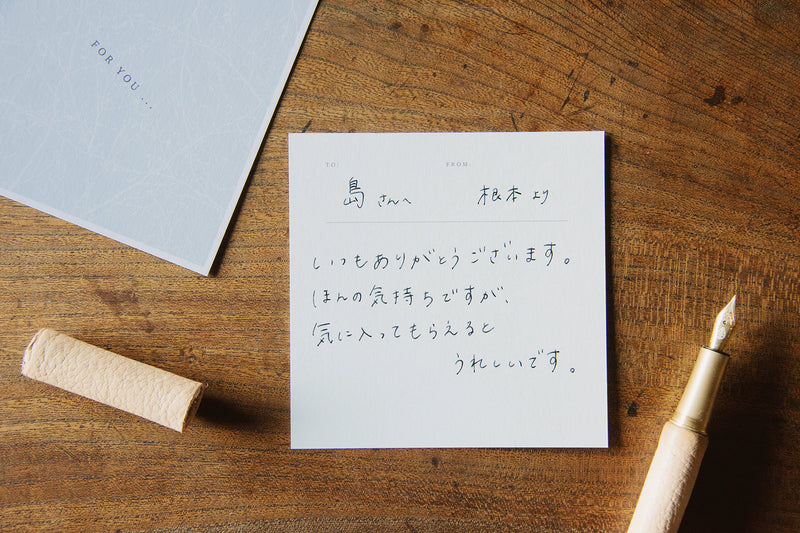 FOR YOU...
TO: FROM:
島さんへ 根本より
いつもありがとうございます。
ほんの気持ちですが、
気に入ってもらえると
うれしいです。